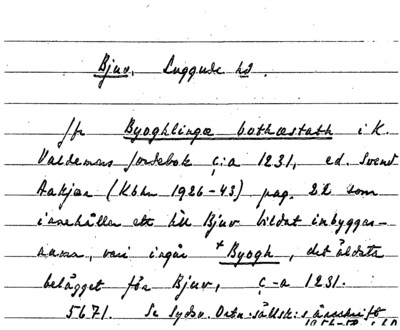 Bjuv, Luggude hd.
Jfr Byoghlingæ bothæstath i K.
Valdemars Jordebok c:a 1231, ed. Svend
Aakjær (Kbhn 1926-43) pag. 22 som
innehåller ett till Bjuv bildat inbyggar-
namn, vari ingår + Byogh, det äldsta
belägget för Bjuv, c-a 1231.
5671. Se Sydsv. Ortn.-sällsk:s årsskrift